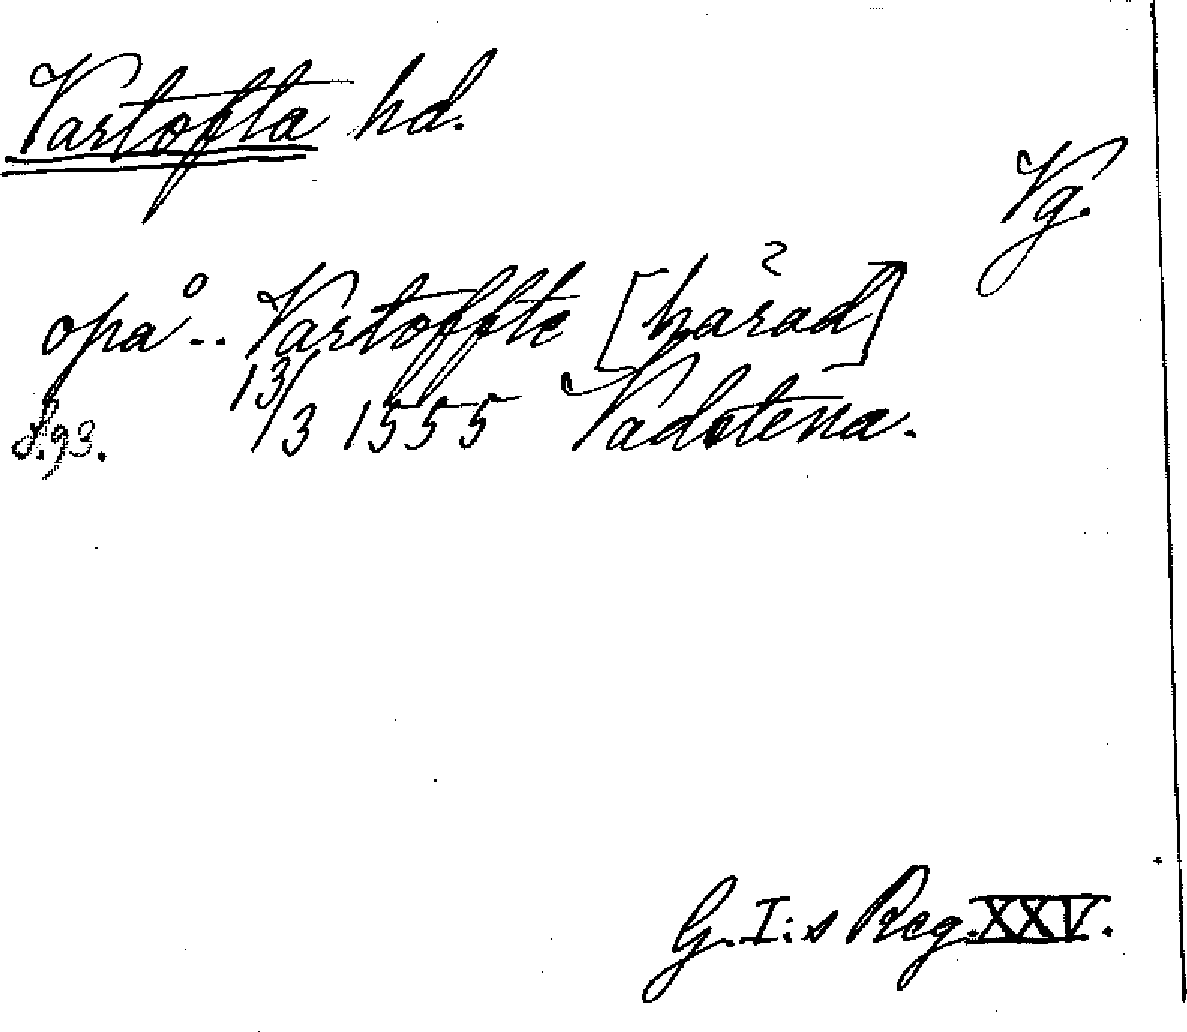 Vartofta hd.
Vg.
opå .. Vartoffte [härad]
13/3 1555 Vadstena.
s. 93.
G. I:s Reg. XXV.